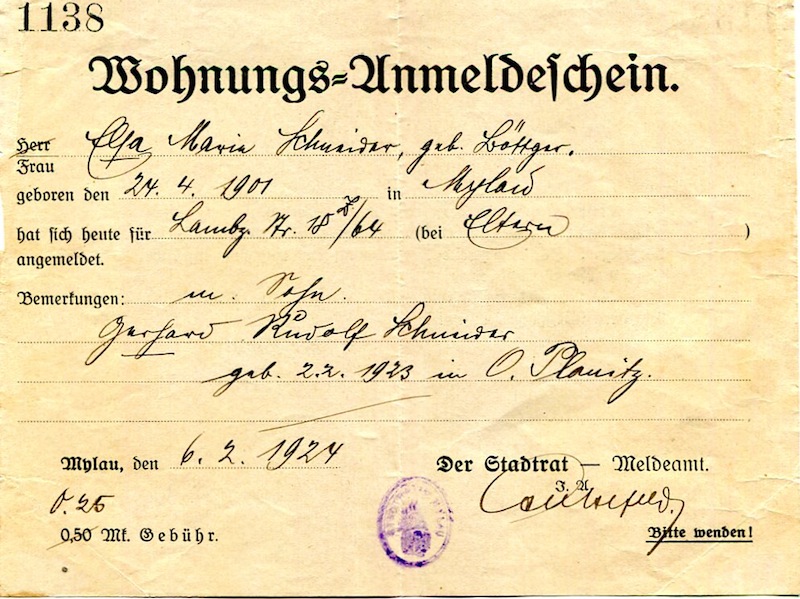 1138
Wohnungs-Anmeldeschein.
Herr Elsa Marie Schneider, geb. Böttger.
Frau
geboren den 24. 4. 1901 in Mylau
hat sich heute für Str. 18 /64 (bei Eltern)
angemeldet.
Bemerkungen: m. Sohn.
Gerhard Rudolf Schneider
geb. 2.2. 1923 in O. Planitz.
Mylau, den 6. 2. 1924 Der Stadtrat — Meldeamt.
J. A.
0.25
0,50 Mk. Gebühr. Bitte wenden!